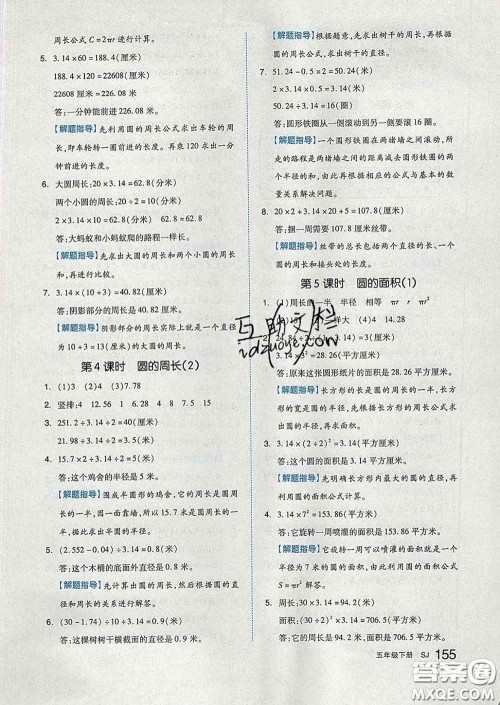 周长公式 C=2πr 进行计算。
5. 3.14×60=188.4(厘米)
188.4×120=22608(厘米)
22608 厘米=226.08 米
答:一分钟能前进 226.08 米。
【解题指导】先利用圆的周长公式求出车轮的周
长,即车轮转一圈所行的长度。再乘 120 求出一分
钟前进的长度。
6. 大圆周长:20×3.14=62.8(分米)
两个小圆的周长:
2×3.14×10=62.8(分米) 62.8=62.8
答:大蚂蚁和小蚂蚁爬的路程一样长。
【解题指导】先求出大圆的周长和两个小圆的周长,
再进行比较。
7. 3.14×10÷2×2=40.82(厘米)
答:阴影部分的周长是 40.82 厘米。
【解题指导】阴影部分的周长实际上就是一个直径
第 4 课时 圆的周长(2)
1. (1)3 (2)4 (3)7.78
2. 竖排:4 12.56 1 6.28 2.5 5
3. 251.2÷3.14÷2=40(厘米)
21.98÷3.14÷2=3.5(米)
4. 15.7×2÷3.14÷2=5(米)
答:这个鸡舍的半径是 5 米。
【解题指导】围成半圆形的鸡舍,它的周长是圆周长
的一半,所以 15.7×2 求出的是圆的周长,再根据周
长求出圆的半径。
5. (2.552-0.04)÷3.14=0.8(米)
答:这个木桶的底面直径是 0.8 米。
【解题指导】先计算出圆的周长,然后根据圆的周长
与直径的关系进行解答。
6. (30-1.74)÷10÷3.14=0.9(米)
答:这棵树树干横截面的直径是 0.9 米。
【解题指导】根据题意,先求出树干的周长,再根据周
长公式,求出树干的直径。
7. 51.24-0.5×2=50.24(米)
2×3.14×0.5=3.14(米)
50.24÷3.14=16(圈)
答:圆形铁圈从一侧滚动到另一侧要滚 16 圈。
【解题指导】一个圆形铁圈在两堵墙之间滚动,所
走的路程是两墙之间的距离减去圆形铁圈的两个
半径的和,由此再根据相应的公式与基本的数
量关系解决问题。
8.
答:捆一周需要 107.5 厘米的丝带。
【解题指导】丝带的总长度实际上包括两部分:圆
的周长和接头处的长度。
第 5 课时 圆的面积(1)
1. (1)周长的一半 半径 相等 πr πr²
3.14×(6÷2)²=28.26(平方厘米)
答:原来这张圆形纸片的面积是 28.26 平方厘米。
【解题指导】长方形的长是圆的周长的一半,长方
形的宽是圆的半径。根据圆的周长求出圆的半径,
最后求出圆的面积。
3. 3.14×(2÷2)²=3.14(平方厘米)
答:这个圆的面积是 3.14 平方厘米。
【解题指导】先明确长方形内最大的圆的直径,再利
用圆的面积公式计算。
4. 3.14×7²=153.86(平方米)
答:它旋转一周喷灌的面积是 153.86 平方米。
【解题指导】它旋转一周可以喷灌的面积是一个
半径为 7 米的圆的面积,由此利用圆的面积公式
S=πr² 解答。
5. 周长:30×3.14=94.2(厘米)
答:它的周长是 94.2 厘米,面积是 706.5 平方厘米。
五年级下册 SJ 155
互助文档
答案圈
MXQE.COM